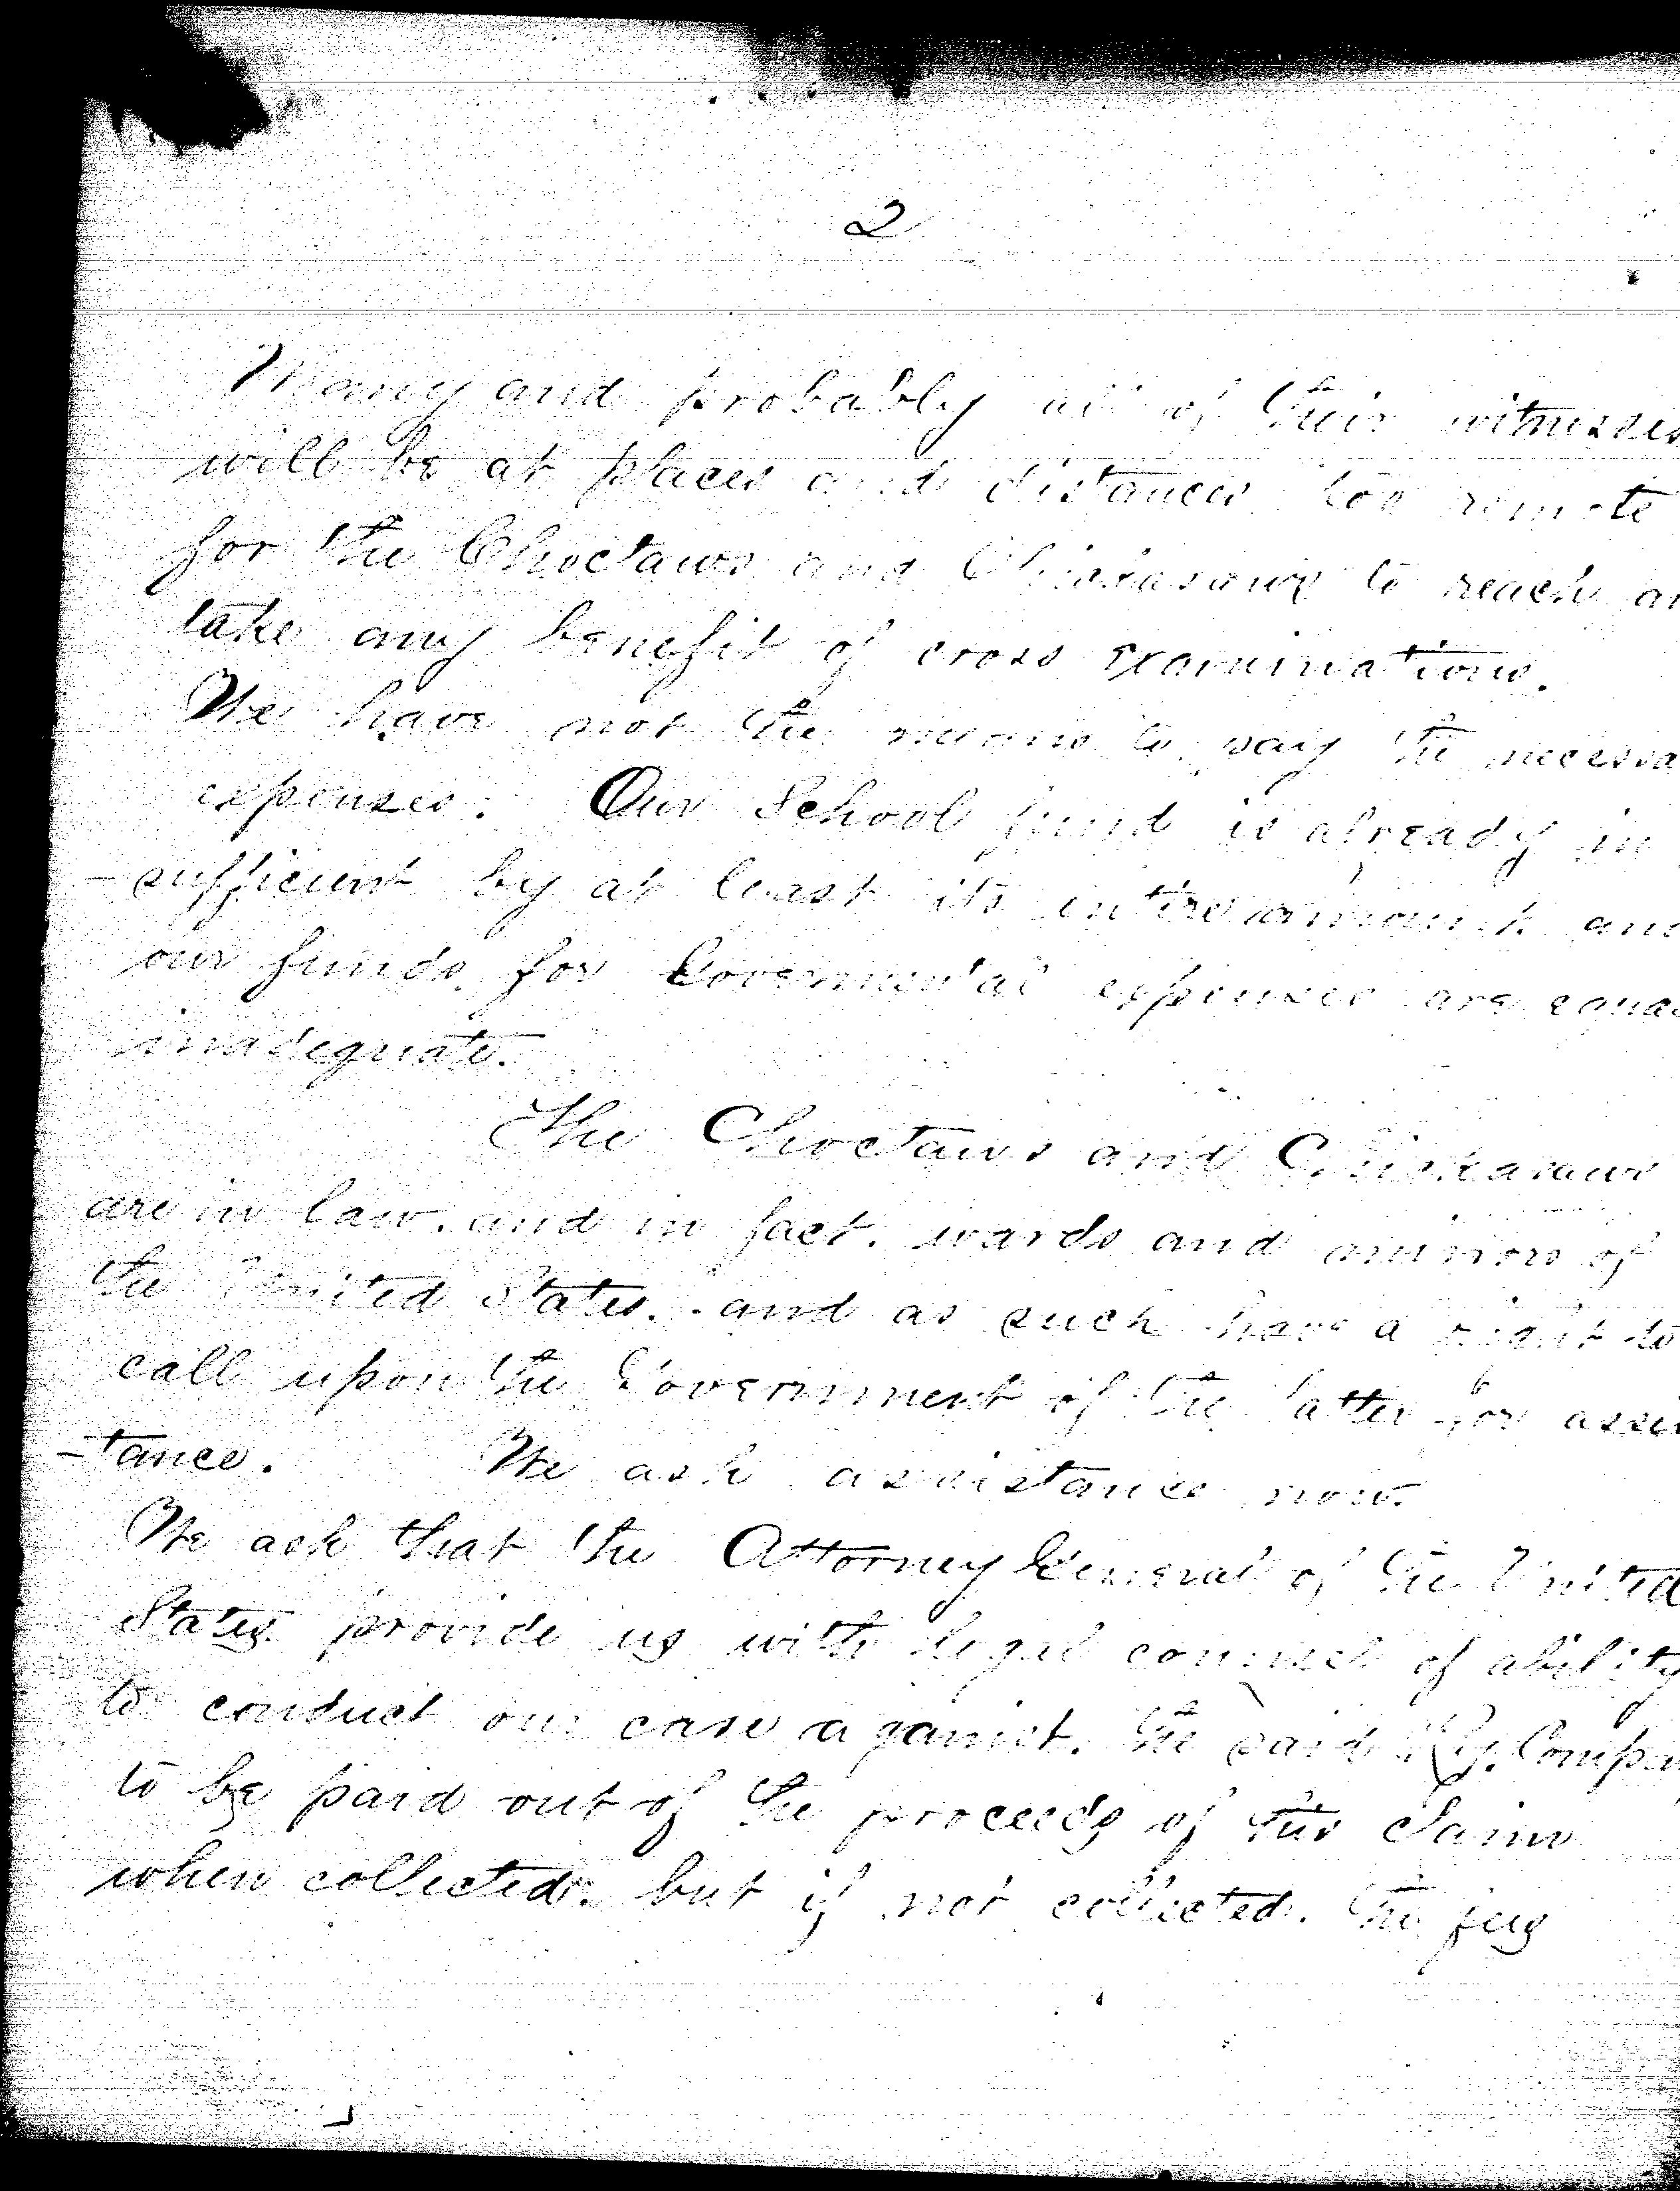 2
Many and probably all of their witnesses
will be at places and distances too remote
for the Choctaws and Chickasaws to reach an
take any benefit of cross examinations.
We have not the means to pay the necessa
expenses. Our School fund is already in
-sufficient by at least its entire amount and
our funds for Governmental expenses are equal
inadequate.
The Choctaws and Chickasaws
are in law. and in fact. wards and minors of
the United States. and as such have a right to
call upon the Government of the latter for assis
-tance. We ask assistance now.
We ask that the Attorney General of the United
States provide us with legal counsel of ability
to conduct our case against. the said Ry. Compa
to be paid out of the proceeds of the
when collected. but if not collected. the fees